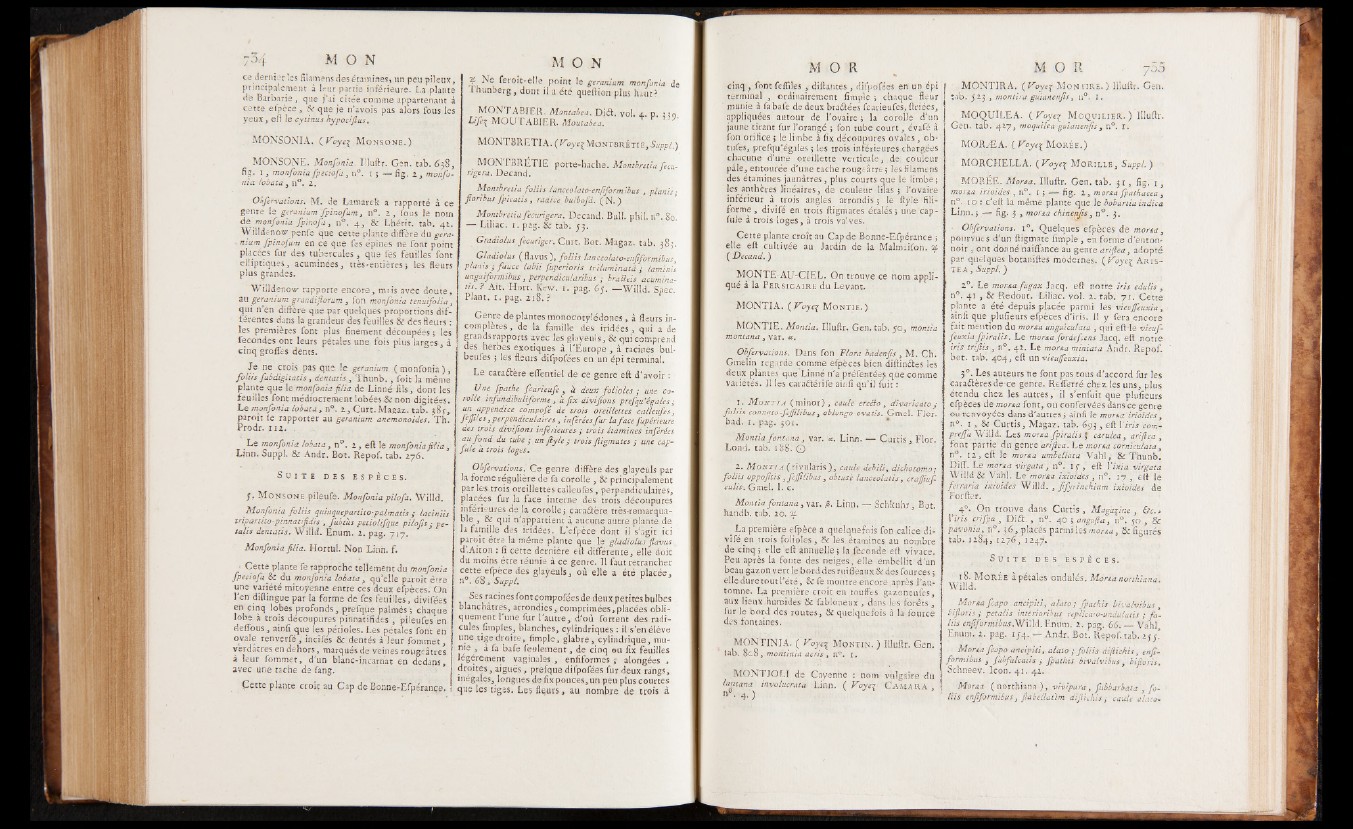 734 M O N
ce dernier les filamens des étamines, un peu pileux,
principalement à leur partie inférieure. La plante
de Barbarie, que j'ai citée comme appartenant à
cette espèce, & que je n'avois pas alors sous les
yeux, est le cytinus hypocistus.
MONSONIA. (Voyez MONSONE.)
MONSONE. Monsonia. Illustr. Gen. tab. 638,
fig. 1, monsonia speciosa, n°. 1; — fig. 2, monso-
nia lobata, n°. 2.
Observations. M. de Lamarck a rapporté à ce
genre le geranium spinosum, n°. 2, sous le nom
de monsonia spinosa, n°. 4, & Lhérit. tab. 42.
Willdenow pense que cette plante diffère du gera-
nium spinosum en ce que ses épines ne sont point
placées sur des tubercules, que ses feuilles sont
elliptiques, acuminées, très-entières; les fleurs
plus grandes.
Willdenow rapporte encore, mais avec doute,
au geranium grandiflorum, son monsonia tenuifolia,
qui n'en diffère que par quelques proportions dif-
férentes dans la grandeur des feuilles & des fleurs;
les premières sont plus finement découpées; les
secondes ont leurs pétales une fois plus larges, à
cinq grosses dents.
Je ne crois pas que le geranium (monsonia),
foliis subdigitatis, dentatis, Thunb., soit la même
plante que le monsonia filia de Linné fils, dont les
feuilles sont médiocrement lobées & non digitées.
Le monsonia lobata, n°. 2, Curt. Magaz. tab. 385,
paroît se rapporter au geranium anemonoides. Th.
Prodr. 112.
Le monsonia lobata, n°. 2, est le monsonia filia,
Linn. Suppl. & Andr. Bot. Repos. tab. 276.
SUITE DES ESPÈCES.
5. MONSONE pileuse. Monsonia pilosa. Willd.
Monsonia foliis quinquepartito-palmatis; laciniis
tripartito-pinnatifidis, subtùs petiolisque pilosis; pe-
talis dentatis. Willd. Enum. 2. pag. 717.
Monsonia filia. Hortul. Non Linn. f.
Cette plante se rapproche tellement du monsonia
speciosa & du monsonia lobata, qu'elle paroît être
une variété mitoyenne entre ces deux espèces. On
l'en distingue par la forme de ses feuilles, divisées
en cinq lobes profonds, presque palmés; chaque
lobe à trois découpures pinnatifides, pileuses en
dessous, ainsi que les pétioles. Les pétales sont en
ovale renversé, incisés & dentés à leur sommet,
verdâtres en dehors, marqués de veines rougeâtres
à leur sommet, d'un blanc-incarnat en dedans,
avec une tache de sang.
Cette plante croît au Cap de Bonne-Espérance.
M O N
♃ Ne seroit-elle point le geranium monsonia de
Thunberg, dont il a été question plus haut?
MONTABIER. Montabea. Dict. vol. 4. p. 339.
Lisez MOUTABIER. Moutabea.
MONTBRETIA. (Voyez MONTBRÉTIE, Suppl.)
MONTBRÉTIE porte-hache. Montbretia secu-
rigera. Decand.
Montbretia foliis lanceolato-ensiformibus, planis;
floribus spicatis, radice bulbosâ. (N.)
Montbretia securigera. Decand. Bull. phil. n°. 80.
— Liliac. 1. pag. & tab. 53.
Gladiolus securiger. Curt. Bot. Magaz. tab. 383.
Gladiolus (flavus), foliis lanceolato-ensiformibus,
planis; fauce labii superioris trilaminata; laminis
unguiformibus, perpendicularibus; bracteis acumina-
tis.? Ait. Hort. Kew. 1. pag. 65. — Willd. Spec.
Plant. 1. pag. 218.?
Genre de plantes monocotylédones, à fleurs in-
complètes, de la famille des iridées, qui a de
grands rapports avec les glayeuls, & qui comprend
des herbes exotiques à l'Europe, à racines bul-
beuses; les fleurs disposées en un épi terminal.
Le caractère essentiel de ce genre est d'avoir:
Une spathe scarieuse, à deux folioles; une co-
rolle infundibuliforme, à six divisions presqu'égales;
un appendice composé de trois oreillettes calleuses,
sessiles, perpendiculaires, insérées sur la face supérieure
des trois divisions inférieures; trois étamines insérées
au fond du tube; un style; trois stigmates; une cap-
sule à trois loges.
Observations. Ce genre diffère des glayeuls par
la forme régulière de sa corolle, & principalement
par les trois oreillettes calleuses, perpendiculaires,
placées sur la face interne des trois découpures
inférieures de la corolle; caractère très-remarqua-
ble, & qui n'appartient à aucune autre plante de
la famille des iridées. L'espèce dont il s'agit ici
paroît être la même plante que le gladiolus flavus
d'Aiton: si cette dernière est différente, elle doit
du moins être réunie à ce genre. Il faut retrancher
cette espèce des glayeuls, où elle a été placée,
n°. 68, Suppl.
Ses racines sont composées de deux petites bulbes
blanchâtres, arrondies, comprimées, placées obli-
quement l'une sur l'autre, d'où sortent des radi-
cules simples, blanches, cylindriques: il s'en élève
une tige droite, simple, glabre, cylindrique, mu-
nie, à sa base seulement, de cinq ou six feuilles
légérement vaginales, ensiformes; alongées,
droites, aiguës, presque disposées sur deux rangs,
inégales, longues de six pouces, un peu plus courtes
que les tiges. Les fleurs, au nombre de trois à
M O R
cinq, sont sessiles, distantes, disposées en un épi
terminal, ordinairement simple; chaque fleur
munie à sa base de deux bractées scarieuses, striées,
appliquées autour de l'ovaire; la corolle d'un
jaune tirant sur l'orangé; son tube court, évasé à
son orifice; le limbe à six découpures ovales, ob-
tuses, presqu'égales; les trois inférieures chargées
chacune d'une oreillette verticale, de couleur
pâle, entourée d'une tache rougeâtre; les filamens
des étamines jaunâtres, plus courts que le limbe;
les anthères linéaires, de couleur lilas; l'ovaire
inférieur à trois angles arrondis; le style fili-
forme, divisé en trois stigmates étalés; une cap-
sule à trois loges, à trois valves.
Cette plante croît au Cap de Bonne-Espérance;
elle est cultivée au Jardin de la Malmaison. ♃
(Decand.)
MONTE AU-CIEL. On trouve ce nom appli-
qué à la PERSICAIRE du Levant.
MONTIA. (Voyez MONTIE.)
MONTIE. Montia. Illustr. Gen. tab. 50, montia
montana, var. α.
Observations. Dans son Flora badensis, M. Ch.
Gmelin regarde comme espèces bien distinctes les
deux plantes que Linné n'a présentées que comme
variétés. Il les caractérise ainsi qu'il suit:
1. MONTIA (minor), caule erecto, divaricato;
foliis connato-sessilibus, oblongo ovatis. Gmel. Flor.
bad. 1. pag. 301.
Montia fontana, var. α. Linn. — Curtis, Flor.
Lond. tab. 188. ☉
2. MONTIA (rivularis), caule debili, dichotomo;
foliis oppositis, sessilibus, obtuse lanceolatis, crassius-
culis. Gmel. l. c.
Montia fontana, var. β. Linn. — Schkuhr, Bot.
handb. tab. 20. ♃
La première espèce a quelquefois son calice di-
visé en trois folioles, & les étamines au nombre
de cinq; elle est annuelle; la seconde est vivace.
Peu après la fonte des neiges, elle embellit d'un
beau gazon vert le bord des ruisseaux & des sources;
elle dure tout l'été, & se montre encore après l'au-
tomne. La première croît en touffes gazonneuses,
aux lieux humides & sablonneux, dans les forêts,
sur le bord des routes, & quelquefois à la source
des fontaines.
MONTINIA. (Voyez MONTIN.) Illustr. Gen.
tab. 808, montinia acris, n°. 1.
MONTJOLI de Cayenne: nom vulgaire du
lantana involucrata Linn. (Voyez CAMARA,
n°. 4.)
M O R 735
MONTIRA. (Voyez MONTIRE.) Illustr. Gen.
tab. 523, montira guianensis, n°. 1.
MOQUILEA. (Voyez MOQUILIER.) Illustr.
Gen. tab. 427, moquilea guianensis, n°. 1.
MORÆA. (Voyez MORÉE.)
MORCHELLA. (Voyez MORILLE, Suppl.)
MORÉE. Moræa. Illustr. Gen. tab. 31, fig. 1,
moræa irioides, n°. 1; — fig. 2, moræa spathacea,
n°. 10: c'est la même plante que le bobartia indica
Linn.; — fig. 3, moræa chinensis, n°. 3.
Observations. 1°. Quelques espèces de moræa,
pourvues d'un stigmate simple, en forme d'enton-
noir, ont donné naissance au genre aristea, adopté
par quelques botanistes modernes. (Voyez ARIS-
TEA, Suppl.)
2°. Le moræa fugax Jacq. est notre iris edulis,
n°. 41, & Redout. Liliac. vol. 2. tab. 71. Cette
plante a été depuis placée parmi les vieusseuxia,
ainsi que plusieurs espèces d'iris. Il y sera encore
fait mention du moræa unguiculata, qui est le vieus-
seuxia spiralis. Le moræa sordescens Jacq. est notre
iris tristis, n°. 42. Le moræa miniata Andr. Repos.
bot. tab. 404, est un vieusseuxia.
3°. Les auteurs ne sont pas tous d'accord sur les
caractères de ce genre. Resserré chez les uns, plus
étendu chez les autres, il s'ensuit que plusieurs
espèces de moræa sont, ou conservées dans ce genre
ou renvoyées dans d'autres; ainsi le moræa irioides,
n°. 1, & Curtis, Magaz. tab. 693, est l'iris com-
pressa Willd. Les moræa spiralis & cærulea, aristea,
font partie du genre aristea. Le moræa corniculata,
n°. 12, est le moræa umbellata Vahl, & Thunb.
Diss. Le moræa virgata, n°. 15, est l'ixia virgata
Willd & Vahl. Le moræa ixioides, n°. 17, est le
ferraria ixioides Willd., sisyrinchium ixioides de
Forster.
4°. On trouve dans Curtis, Magazine, &c.,
l'iris crispa, Dict., n°. 40; angusta, n°. 50, &
pavonia, n°. 36, placés parmi les moræa, & figurés
tab. 1284, 1276, 1247.
SUITE DES ESPÈCES.
18. MORÉE à pétales ondulés. Moræa northiana.
Willd.
Moræa scapo ancipiti, alato; spathis bivalvibus,
bifloris; petalis interioribus replicato-undulatis; fo-
liis ensiformibus. Willd. Enum. 2. pag. 66. — Vahl,
Enum. 2. pag. 154. — Andr. Bot. Repos. tab. 255.
Moræa scapo ancipiti, alato; foliis distichis, ensi-
formibus, subfalcatis; spathis bivalvibus, bifloris.
Schneev. Icon. 41. 42.
Moræa (northiana), vivipara, subbarbata, fo-
liis ensiformibus, flabellatim distichis, caule alato-